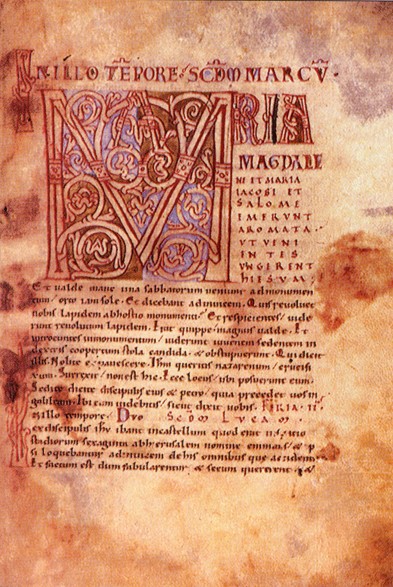 IN ILLO TĒPORE· SCDM MARCV̄·
MARIA
MAGDALE
NE ET MARIA
IACOBI ET
SALOME
EMERUNT
AROMATA·
UT VENI
ENTES
UNGERENT
IHESUM·
Et valde mane una sabbatorum veniunt admonumen
tum· orto iam sole. Et dicebant adinvicem. Quis revoluet
nobis lapidem abhostio monumenti? Et respicientes/ vide
runt revolutum lapidem. Erat quippe magnus valde. Et
introeuntes inmonumentum/ viderunt iuvenem sedentem in
dextris coopertum stola candida· & obstupuerunt. Qui dicit
illis. Nolite expavescere. Ihm queritis nazarenum/ crucifi
xum. Surrexit/ non est hic. Ecce locus/ ubi posuerunt eum.
Sed ite dicite discipulis eius & petro/ quia precedet vos in
galileam. Ibi eum videbitis/ sicut dixit vobis. FERIA II
In illo tempore. Duo SCDM LUCAM.
ex discipulis ihu ibant incastellum quod erat in
stadiorum sexaginta abhierusalem nomine emmaus· & ip
si loquebantur adinvicem dehis omnibus que acciderant
Et factum est dum fabularentur & secum quererent &